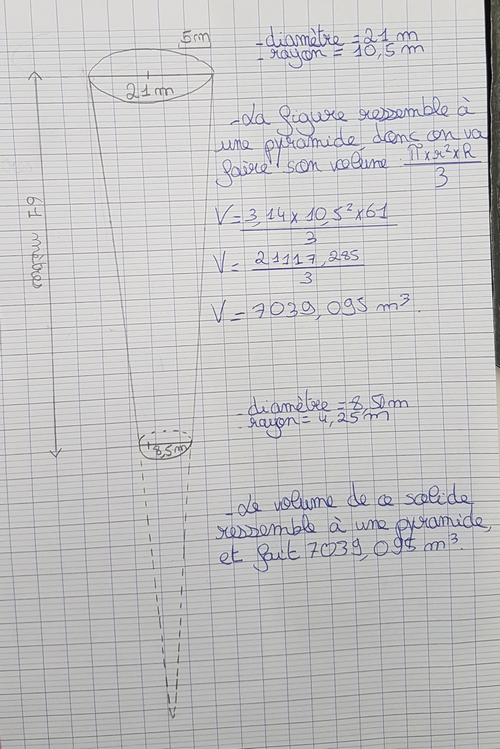 ,5m
21 m
61 mètres
8,5m
- diamètre = 21 m
- rayon = 10,5 m
- La figure ressemble à
une pyramide, donc on va
faire son volume π x r² x h
3
V = 3,14 x 10,5² x 61
3
V = 21117,285
3
V = 7039,095 m³.
- diamètre = 8,50 m
- rayon = 4,25 m
- Le volume de ce solide
ressemble à une pyramide,
et fait 7039,095 m³.